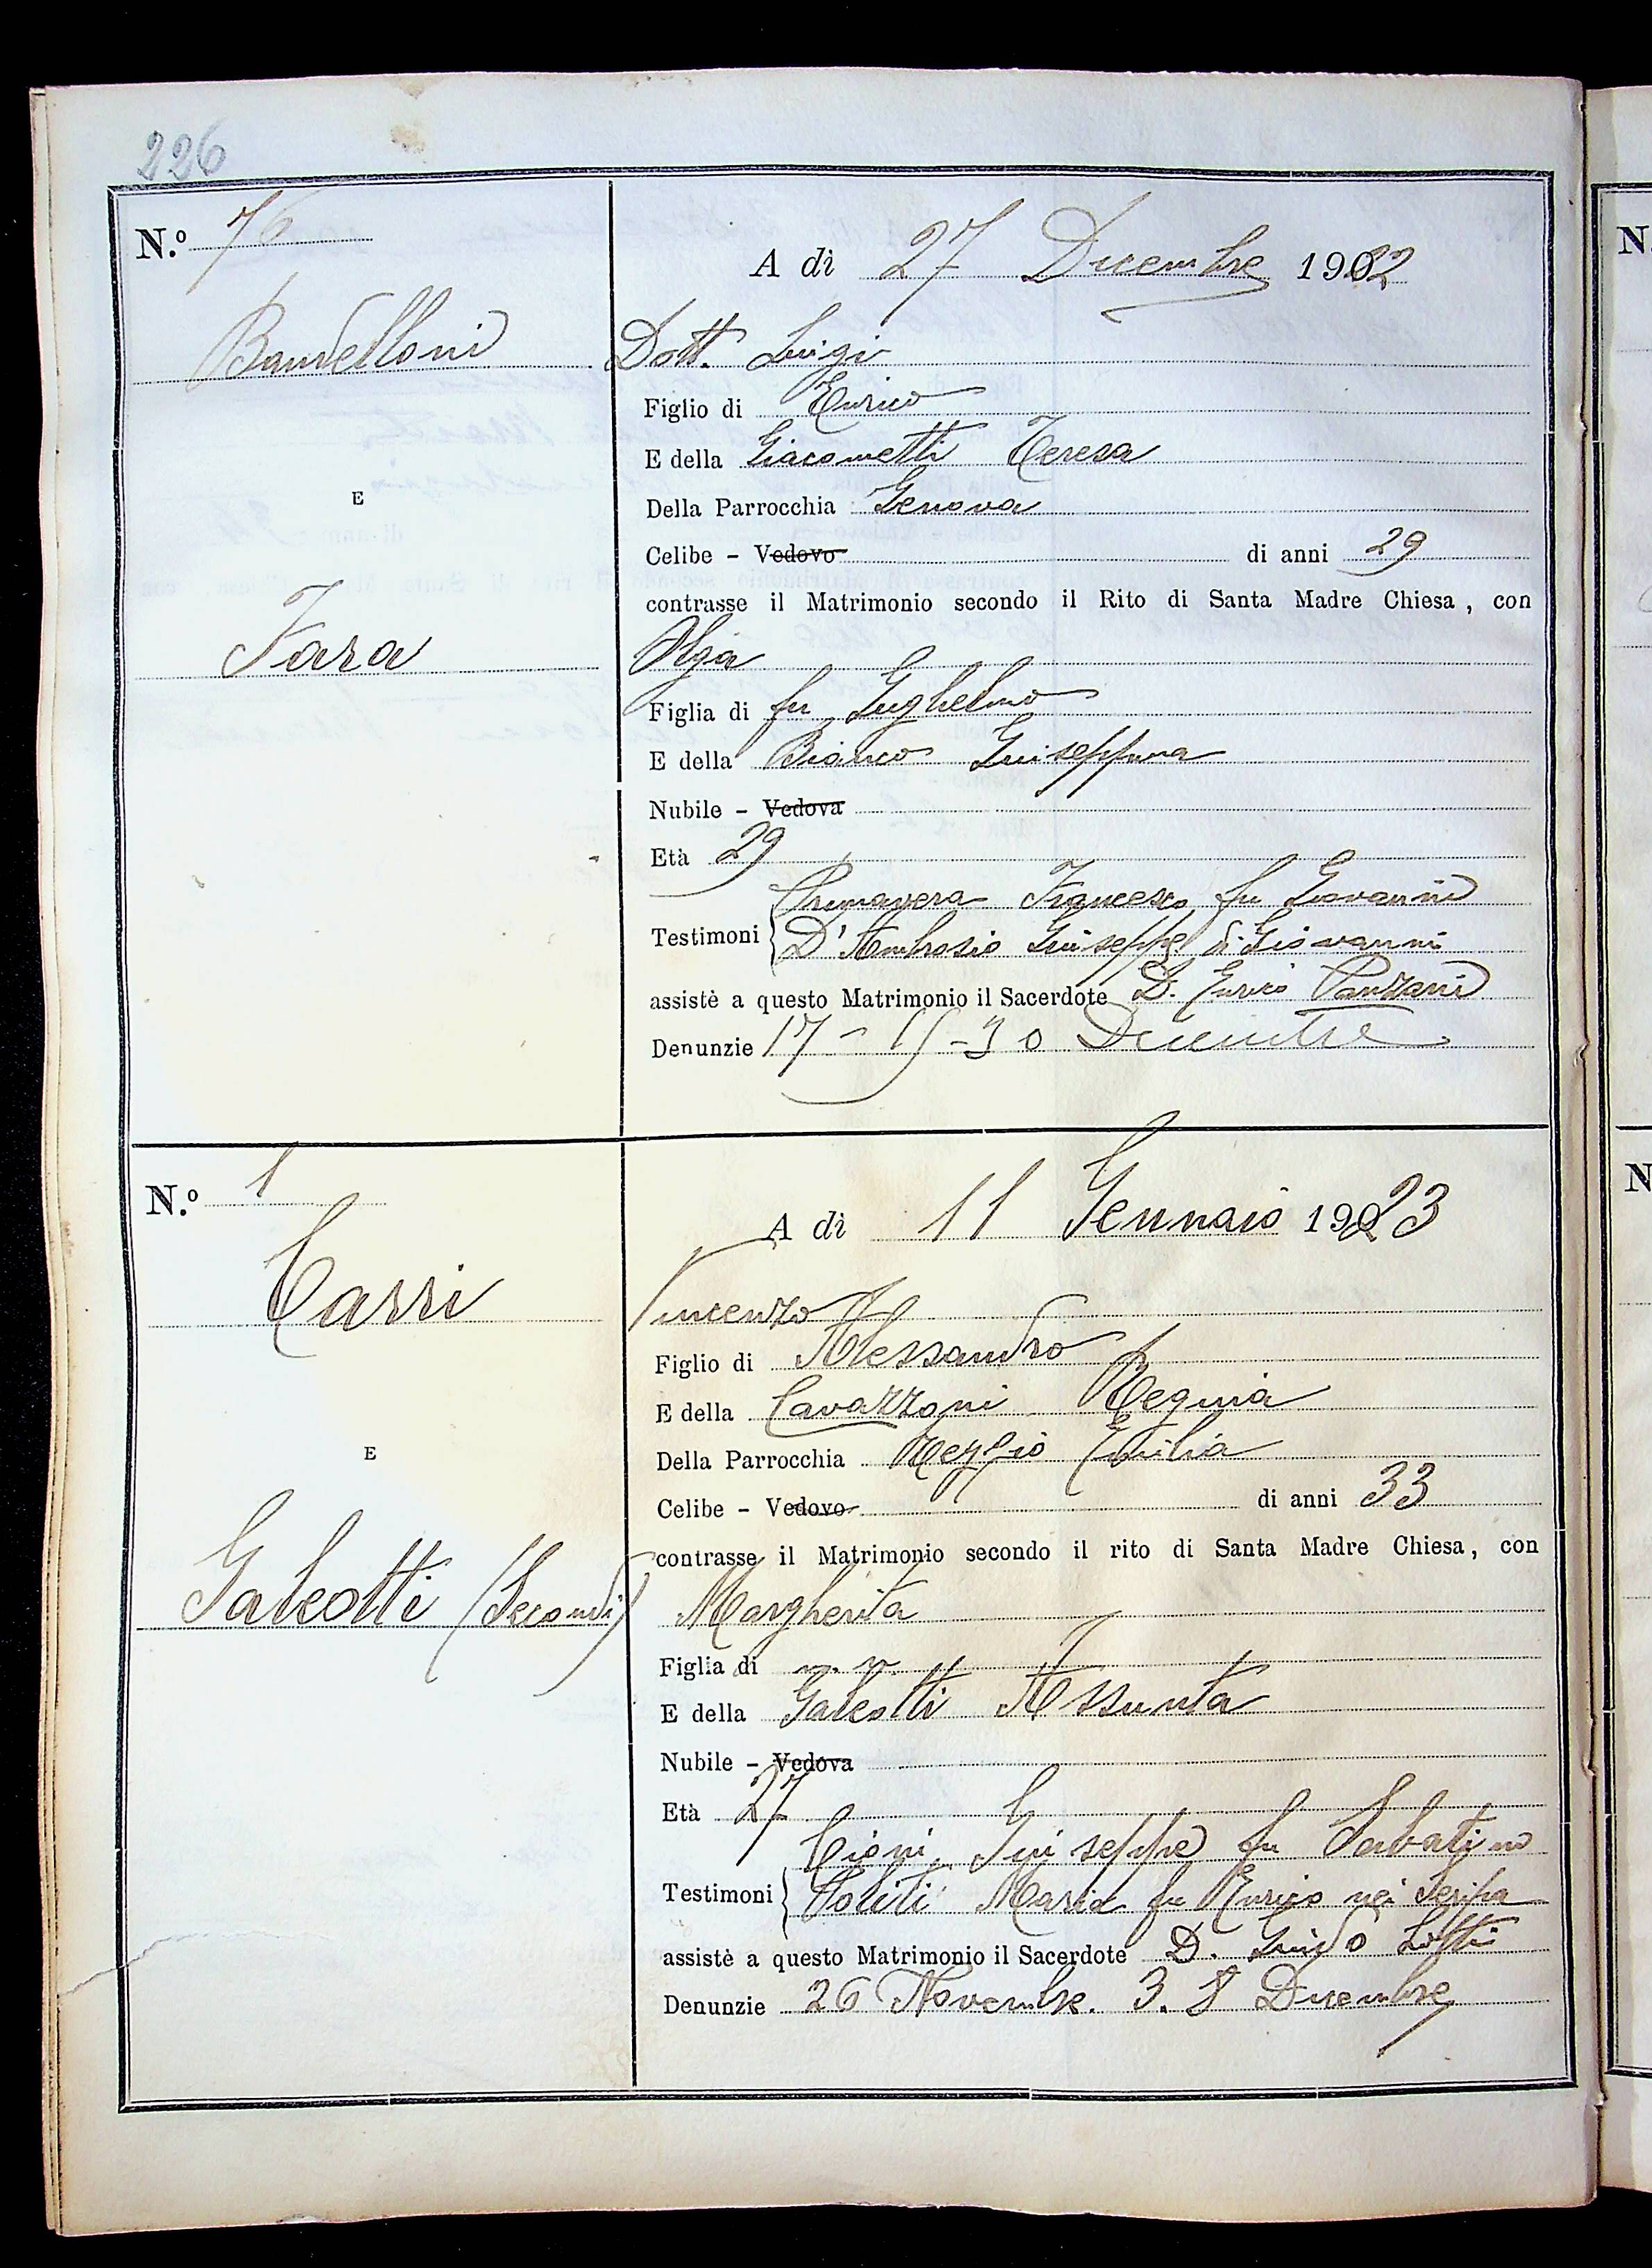 226
N.º 76
A dì 27 Decembre 1922
Bandelloni Dott. Luigi
Figlio di Enrico
E della Giacometti Teresa
Della Parrocchia Genova
E
Celibe - Vedovo di anni 29
contrasse il Matrimonio secondo il Rito di Santa Madre Chiesa, con
Fara Olga
Figlia di fu Guglielmo
E della Bianco Giuseppina
Nubile - Vedova
Età 29
Primavera Francesco fu Giovanni
Testimoni D'Ambrosio Giuseppe di Giovanni
assistè a questo Matrimonio il Sacerdote D. Enrico Panzani
Denunzie 17 - - Decembre
N.º 1
A dì 11 Gennaio 1923
Carri Vincenzo
Figlio di Alessandro
E della Cavazzoni Regina
E
Della Parrocchia Reggio Emilia
Celibe - Vedovo di anni 33
contrasse il Matrimonio secondo il rito di Santa Madre Chiesa, con
Galeotti (Secondi) Margherita
Figlia di n. n.
E della Galeotti Assunta
Nubile - Vedova
Età 27
Cioni Giuseppe fu Sabatino
Testimoni Politi Maria fu Enrico nei
assistè a questo Matrimonio il Sacerdote D. Guido Lotti
Denunzie 26 Novembre. 3. 8 Decembre
N
N